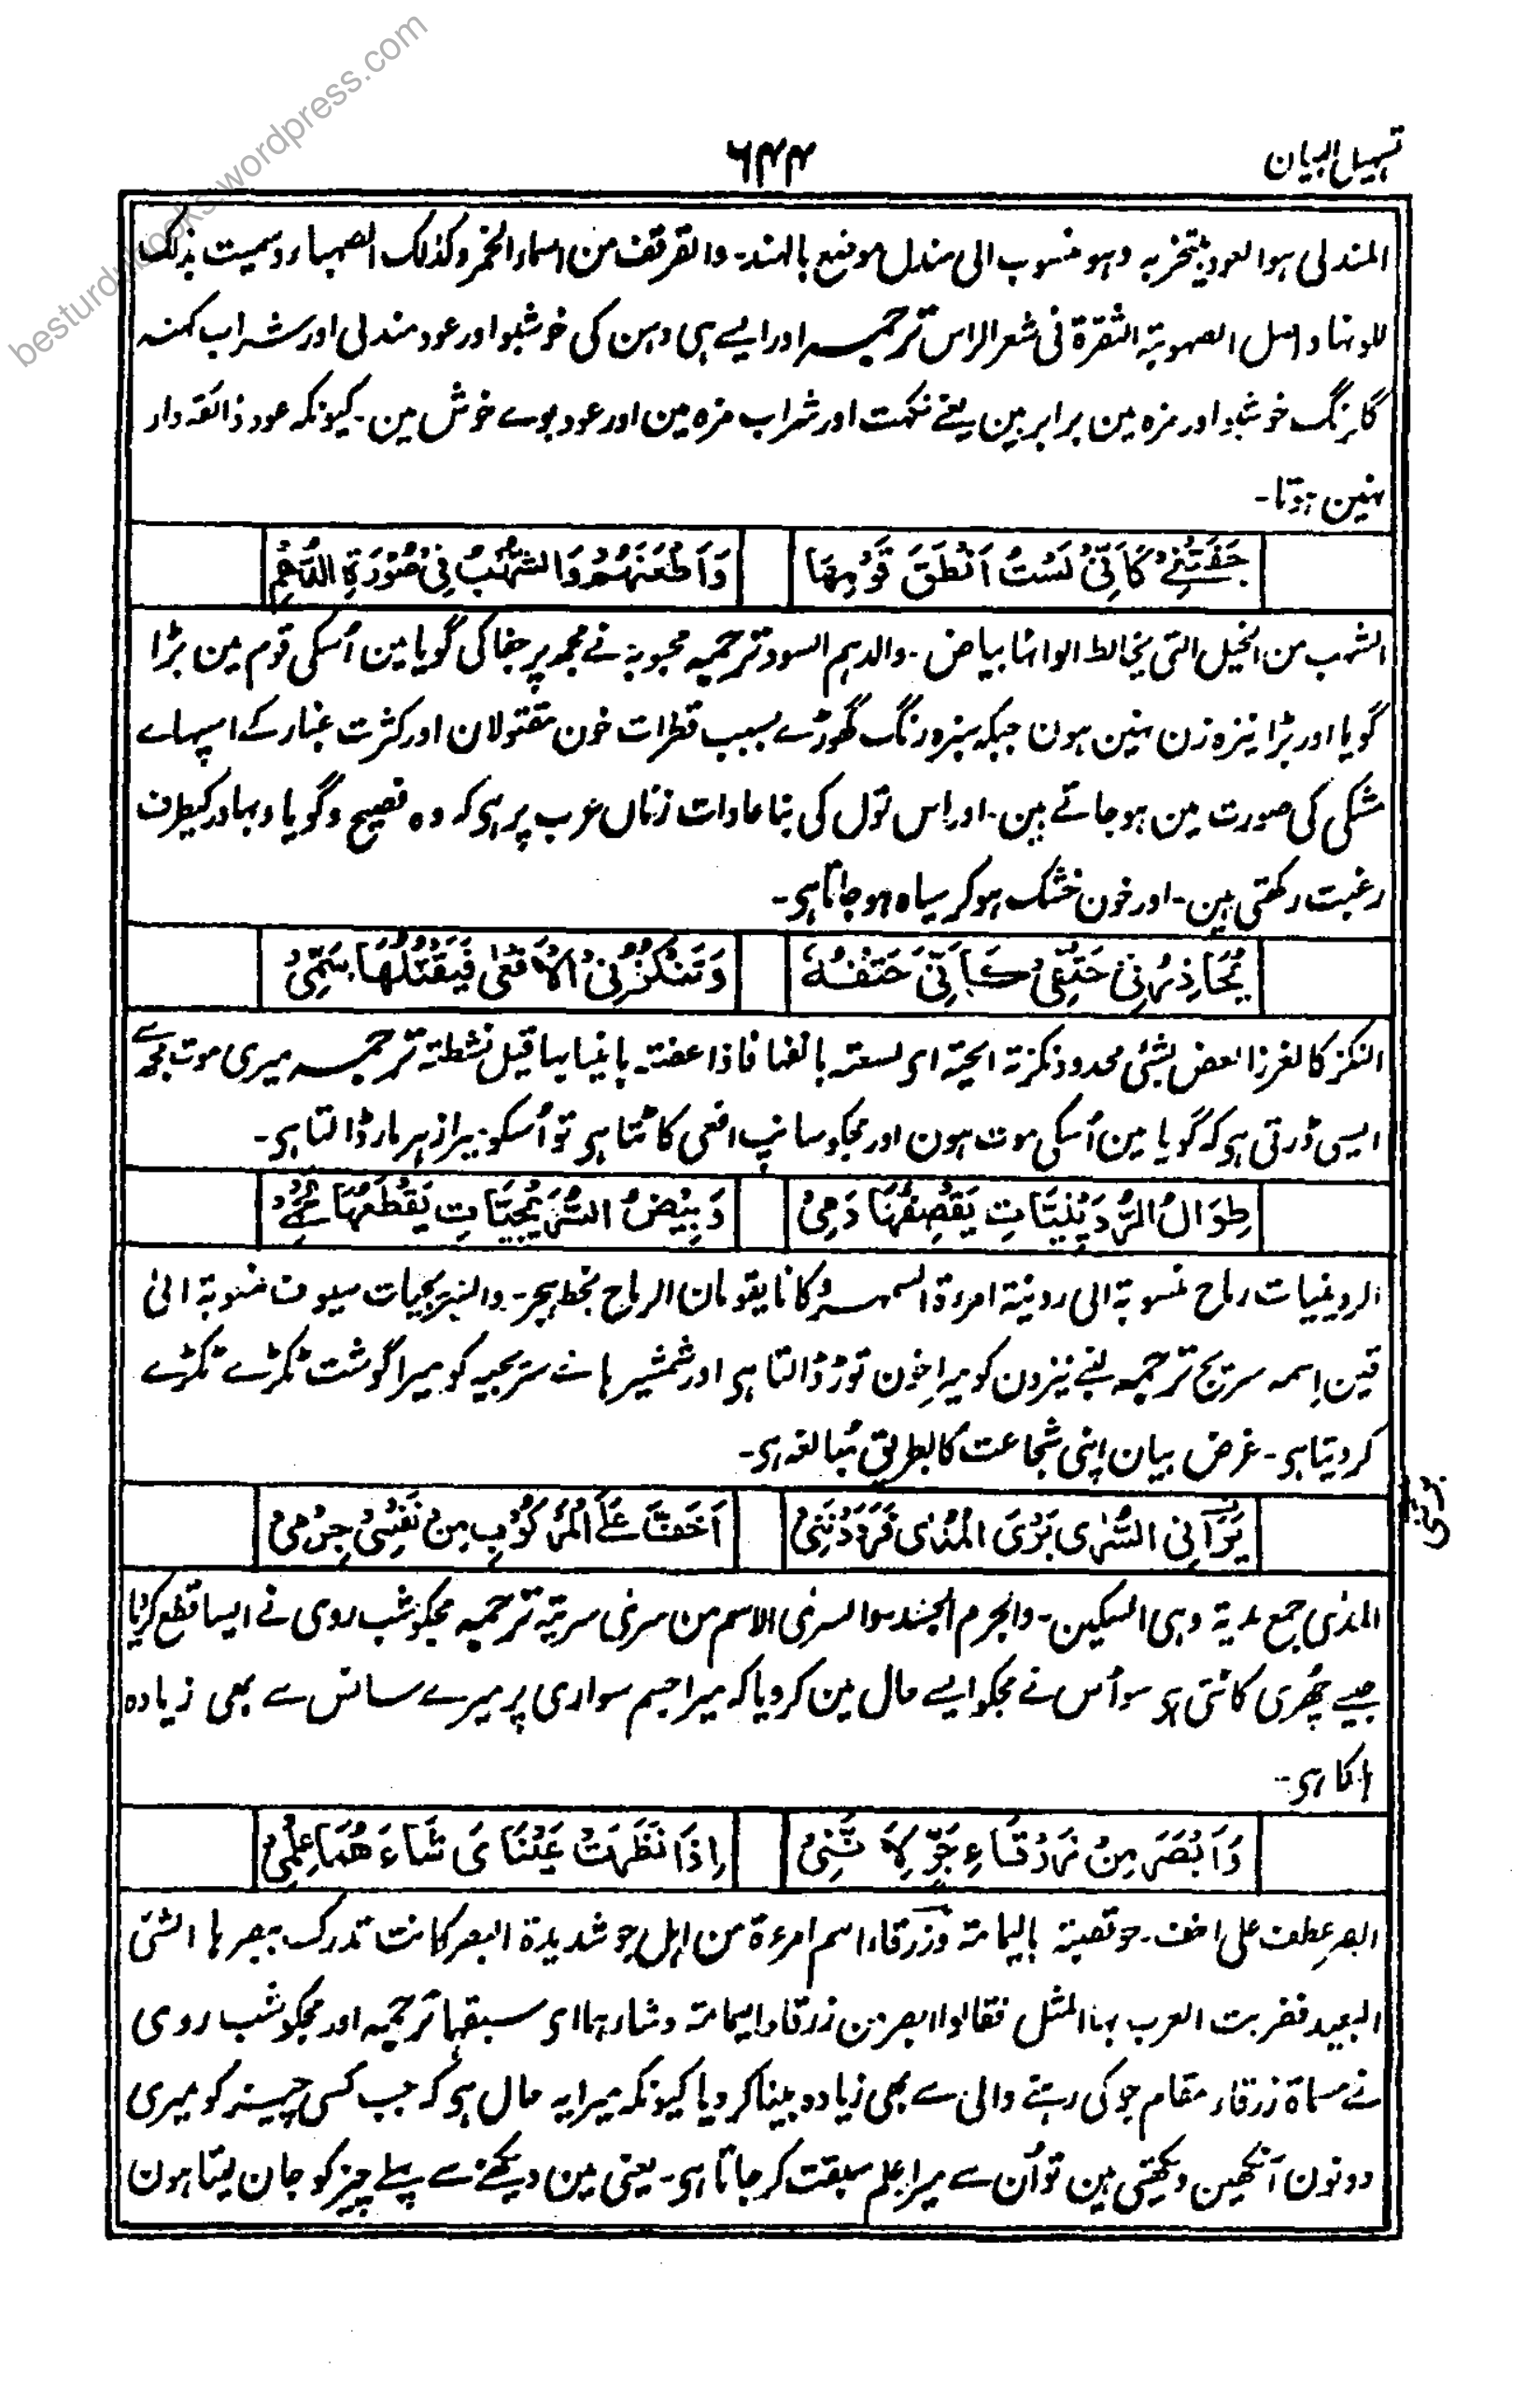 تسہیل البیان
۶۴۴
المندلی ہو العود یتبخر بہ وہو منسوب الی مندل موضع بالہند۔ والقرقف من اسماء الخمر وکذلک الصہباء وسمیت بذلک
للونہا واصل الصہوبۃ الشقرۃ فی شعر الراس ترجمہ اور ایسے ہی دہن کی خوشبو اور عود مندلی اور شراب کہنہ
کا رنگ خوشبو اور مزہ مین برابر ہین یعنے نکہت اور شراب مزہ مین اور عود بوے خوش مین۔ کیونکہ عود ذائقہ دار
نہین ہوتا۔
جَفَتْنِيْ كَاَنِّيْ لَسْتُ اَنْطَقَ قَوْمِهَا وَاَطْعَنَهُمْ وَالشُّهْبُ فِيْ صُوْرَةِ الدُّهْمِ
الشہب من الخیل التی یخالط الوانہا بیاض۔ والدہم السود ترجمہ محبوبہ نے مجھپر جفا کی گویا مین اُسکی قوم مین بڑا
گویا اور بڑا نیزہ زن نہین ہون جبکہ سبزہ رنگ گھوڑے بسبب قطرات خون مقتولان اور کثرت غبار کے اسپہاے
مشکی کی صورت مین ہو جاتے ہین۔ اور اس قول کی بنا عادات زنان عرب پر ہی کہ وہ فصیح وگویا و بہادر کیطرف
رغبت رکھتی ہین۔ اور خون خشک ہو کر سیاہ ہو جاتا ہی۔
يُحَاذِرُنِيْ حَتْفِيْ كَاَنِّيْ حَتْفُهٗ وَتَنْكُزُنِيْ الْاَفْعٰى فَيَقْتُلُهَا سَمِّيْ
النکز کالغرز العض بشئی محدود نکزتہ الحیۃ ای لسعتہ بانفہا فاذا عضتہ بانیابہا قیل نشطتہ ترجمہ میری موت مجھ سے
ایسی ڈرتی ہی کہ گویا مین اُسکی موت ہون اور مجکو سانپ افعی کاٹتا ہی تو اُسکو میرا زہر مار ڈالتا ہی۔
طِوَالُ الرُّدَيْنِيَّاتِ يَقْصِفُهَا دَمِيْ وَبِيْضُ السُّرَيْجِيَّاتِ يَقْطَعُهَا لَحْمِيْ
الردینیات رماح منسوبۃ الی ردینۃ امرءۃ السمہر وکانا یقومان الرماح بخط ہجر۔ والسریجیات سیوف منسوبۃ الی
قین اسمہ سریج ترجمہ لنبے نیزون کو میرا خون توڑ ڈالتا ہی اور شمشیر ہاے سریجیہ کو میرا گوشت ٹکڑے ٹکڑے
کر دیتا ہی۔ غرض بیان اپنی شجاعت کا بطریق مبالغہ ہی۔
بَرَانِي السُّرٰى بَرْيَ الْمُدٰى فَرَدَدْنَنِيْ اَخَفَّ عَلَى الْمَرْكُوْبِ مِنْ نَفْسِيْ جِرْمِيْ
المدی جمع مدیۃ وہی السکین۔ والجرم الجسد والسری الاسم من سری سریۃ ترجمہ مجکو شب روی نے ایسا قطع کر دیا
جیسے چھری کاٹتی ہی سو اُس نے مجکو ایسے حال مین کر دیا کہ میرا جسم سواری پر میرے سانس سے بھی زیادہ
ہلکا ہی۔
وَاَبْصَرَ مِنْ زَرْقَاءِ جَوٍّ لِاَنَّنِيْ اِذَا نَظَرَتْ عَيْنَايَ شَاءَهُمَا عِلْمِيْ
ابصر عطف علی اخف۔ جو قصبۃ بالیمامۃ وزرقاء اسم امرءۃ من اہل جو شدیدۃ البصر کانت تدرک ببصرہا الشئی
البعید فضربت العرب بہا المثل فقالوا ابصر من زرقاء الیمامۃ وشاءہما ای سبقہما ترجمہ اور مجکو شب روی
نے مسماۃ زرقاء مقام جو کی رہنے والی سے بھی زیادہ بینا کر دیا کیونکہ میرا یہ حال ہی کہ جب کسی چیز کو میری
دونون آنکھین دیکھتی ہین تو اُن سے میرا علم سبقت کر جاتا ہی۔ یعنی مین دیکھنے سے پہلے چیز کو جان لیتا ہون
besturdubooks.wordpress.com